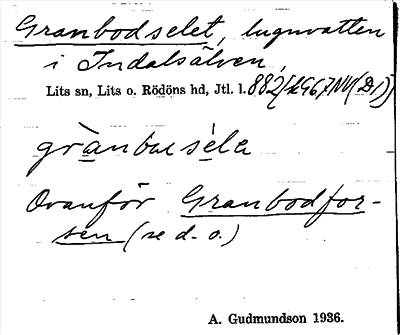 Granbodselet, lugnvatten
i Indalsälven,
Lits sn, Lits o. Rödöns hd, Jtl. l. 882 (£G67NV(D1))
grànbᴂsèla
Ovanför Granbodfor-
sen (se d. o.)
A. Gudmundson 1936.